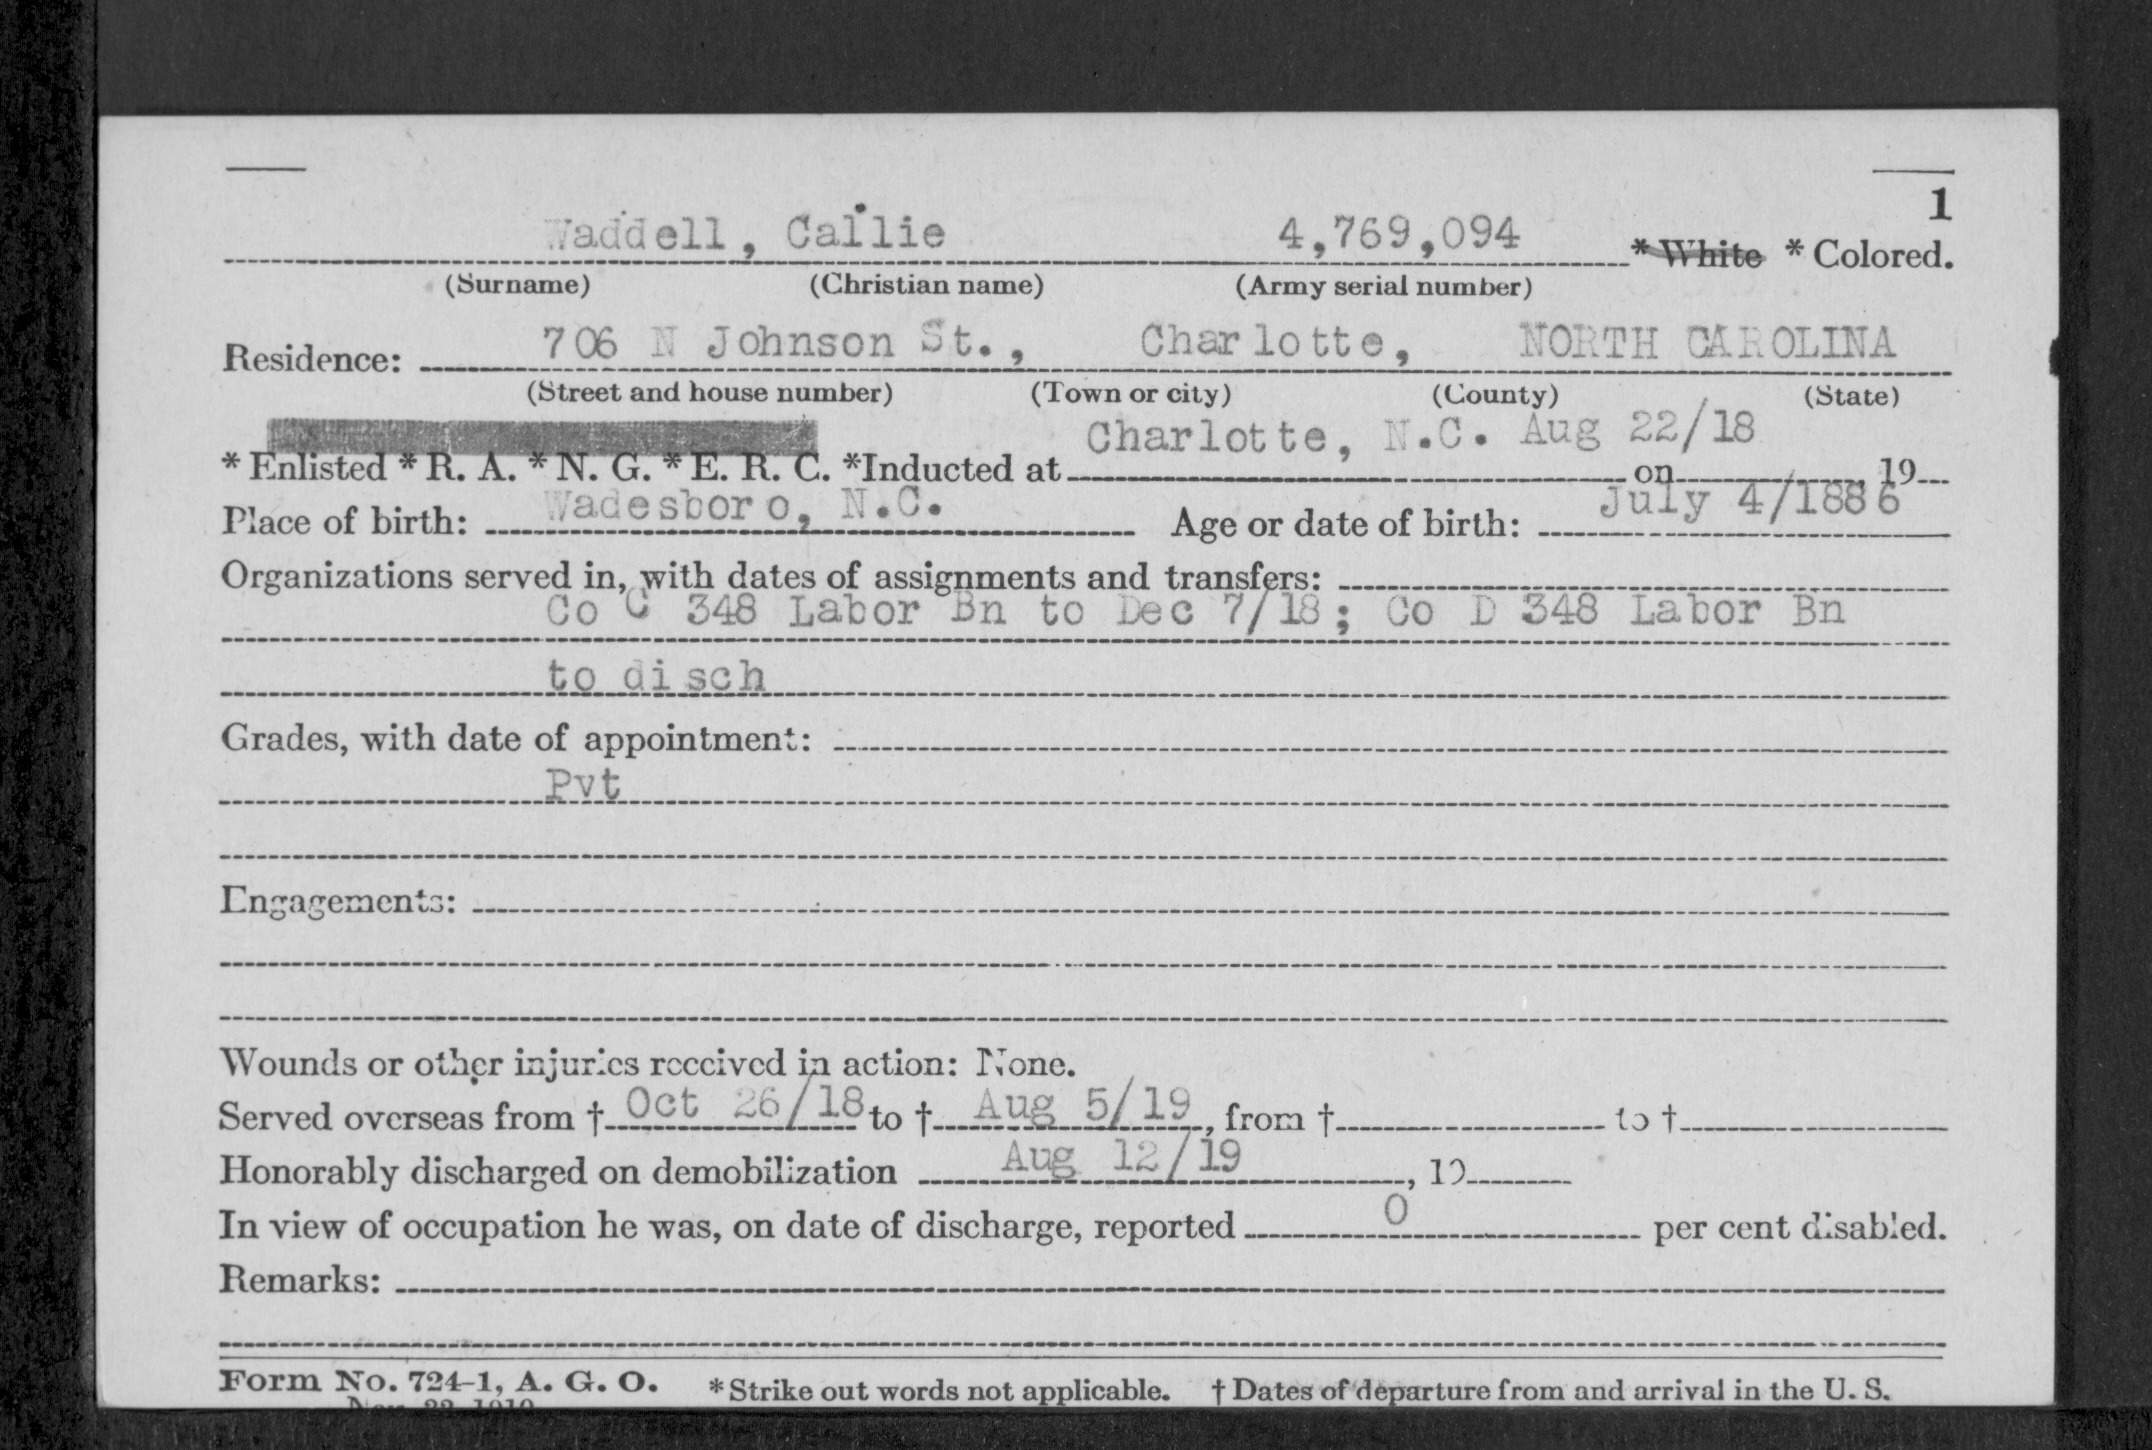 1
Waddell, Callie 4,769,094 * White * Colored.
(Surname) (Christian name) (Army serial number)
Residence: 706 N Johnson St., Charlotte, NORTH CAROLINA
(Street and house number) (Town or city) (County) (State)
* Enlisted * R. A. * N. G. * E. R. C. *Inducted at Charlotte, N.C. on Aug 22/18, 19
Place of birth: Wadesboro, N.C. Age or date of birth: July 4/1886
Organizations served in, with dates of assignments and transfers:
Co C 348 Labor Bn to Dec 7/18; Co D 348 Labor Bn
to disch
Grades, with date of appointment:
Pvt
Engagements:
Wounds or other injuries received in action: None.
Served overseas from † Oct 26/18 to † Aug 5/19, from † to †
Honorably discharged on demobilization Aug 12/19, 19
In view of occupation he was, on date of discharge, reported 0 per cent disabled.
Remarks:
Form No. 724-1, A. G. O. * Strike out words not applicable. † Dates of departure from and arrival in the U. S.